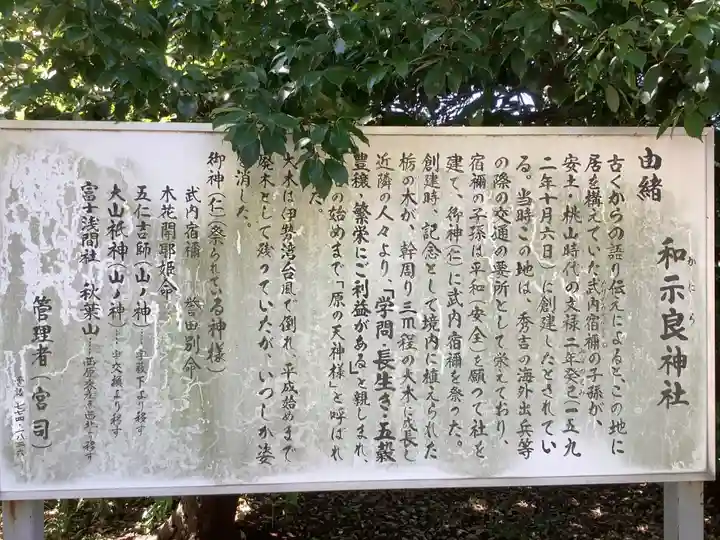 由緒
和示良神社
かにら
古くからの語り伝えによると、この地に
居を構えていた武内宿禰の子孫が、
安土・桃山時代の文禄二年癸巳(一五九
二年十月六日)に創建したとされてい
る。当時この地は、秀吉の海外出兵等
の際の交通の要所として栄えており、
宿禰の子孫は平和(安全)を願って社を
建て、御神(仁)に武内宿禰を祭った。
創建時、記念として境内に植えられた
栃の木が、幹周り三m程の大木に成長し
近隣の人々より、「学問・長生き・五穀
豊穣・繁栄にご利益がある」と親しまれ、
の始めまで「原の天神様」と呼ばれ
た。
大木は伊勢湾台風で倒れ、平成始めまで
廃木として残っていたが、いつしか姿
消した。
御神(仁)(祭られている神様)
武内宿禰 誉田別命
木花開耶姫命
五仁吉師(山ノ神)…宇殿下より移す
大山祇神(山ノ神)…中交線より移す
富士浅間社 秋葉山…西原
西北より移す
管理者(宮司)